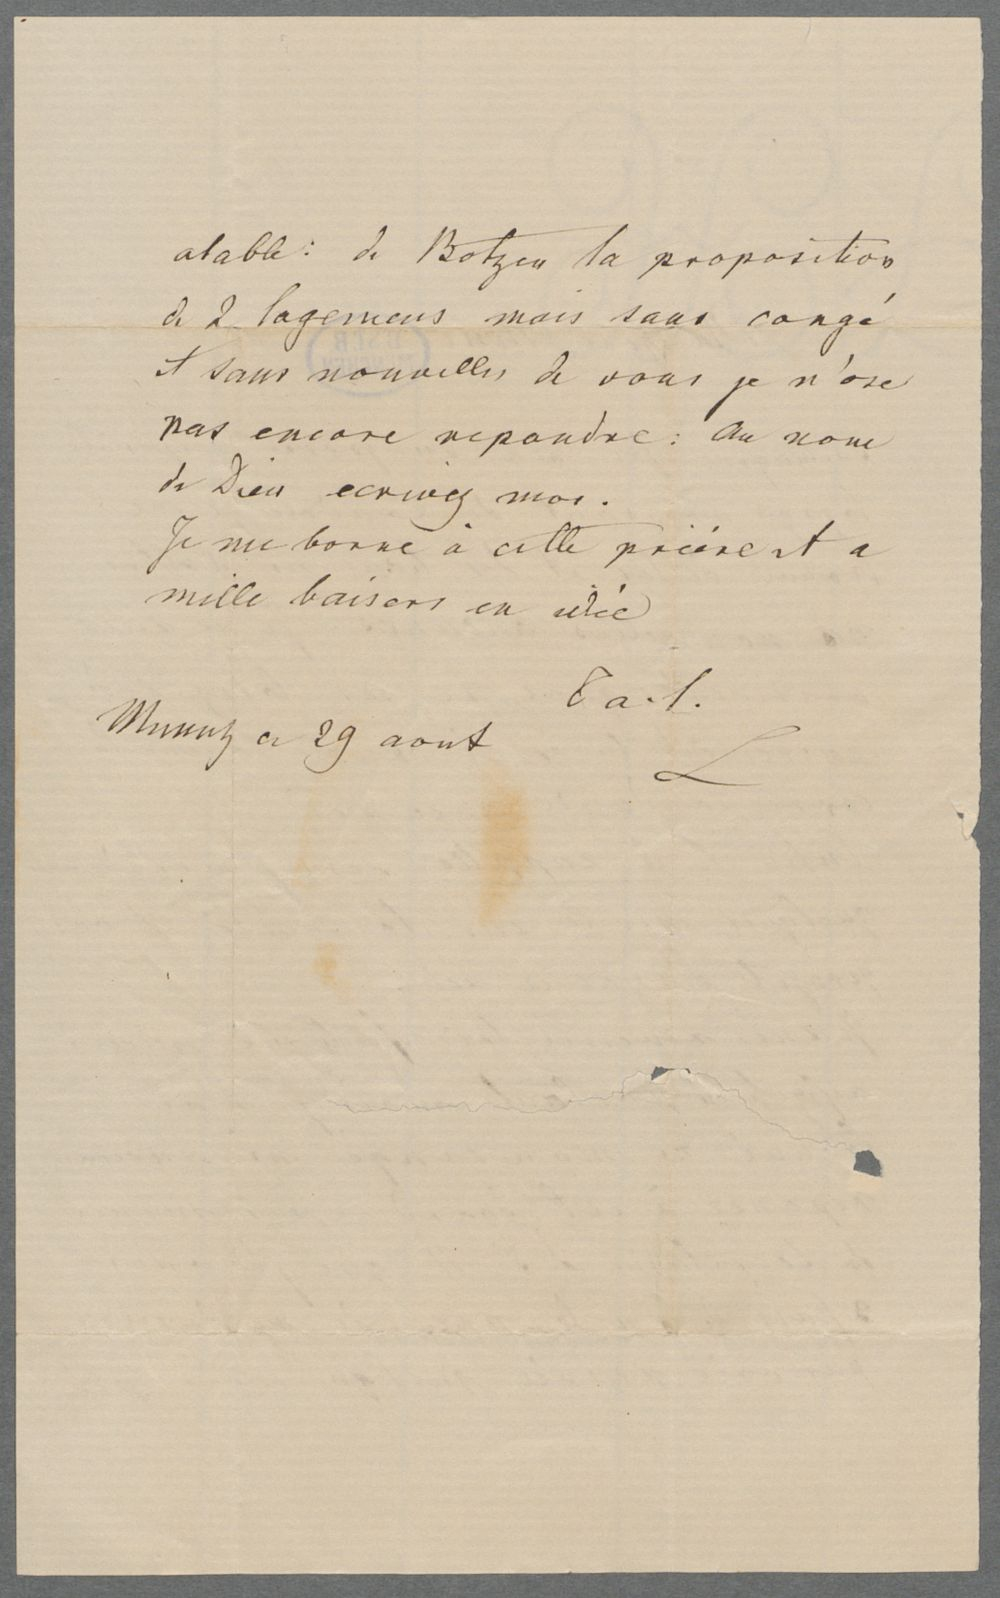 atable: de Botzen la proposition
de 2 logemens mais sans congé
et sans nouvelles de vous je n'ose
pas encore repondre: Au nom
de Dieu ecrivez moi.
Je me borne à cette prière et a
mille baisers en idée
T a. l.
ce 29 aout
L